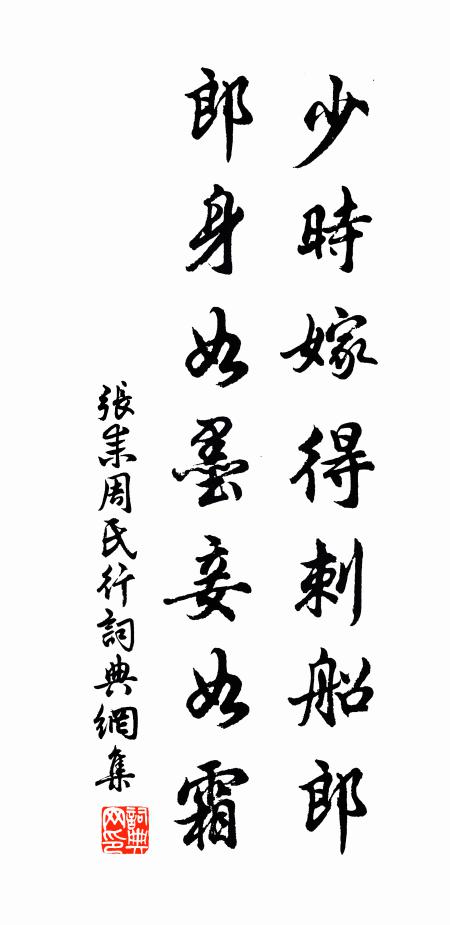 少時嫁得刺船郎
郎身如墨妾如霜
張耒周氏行詞典網集
詞典网印